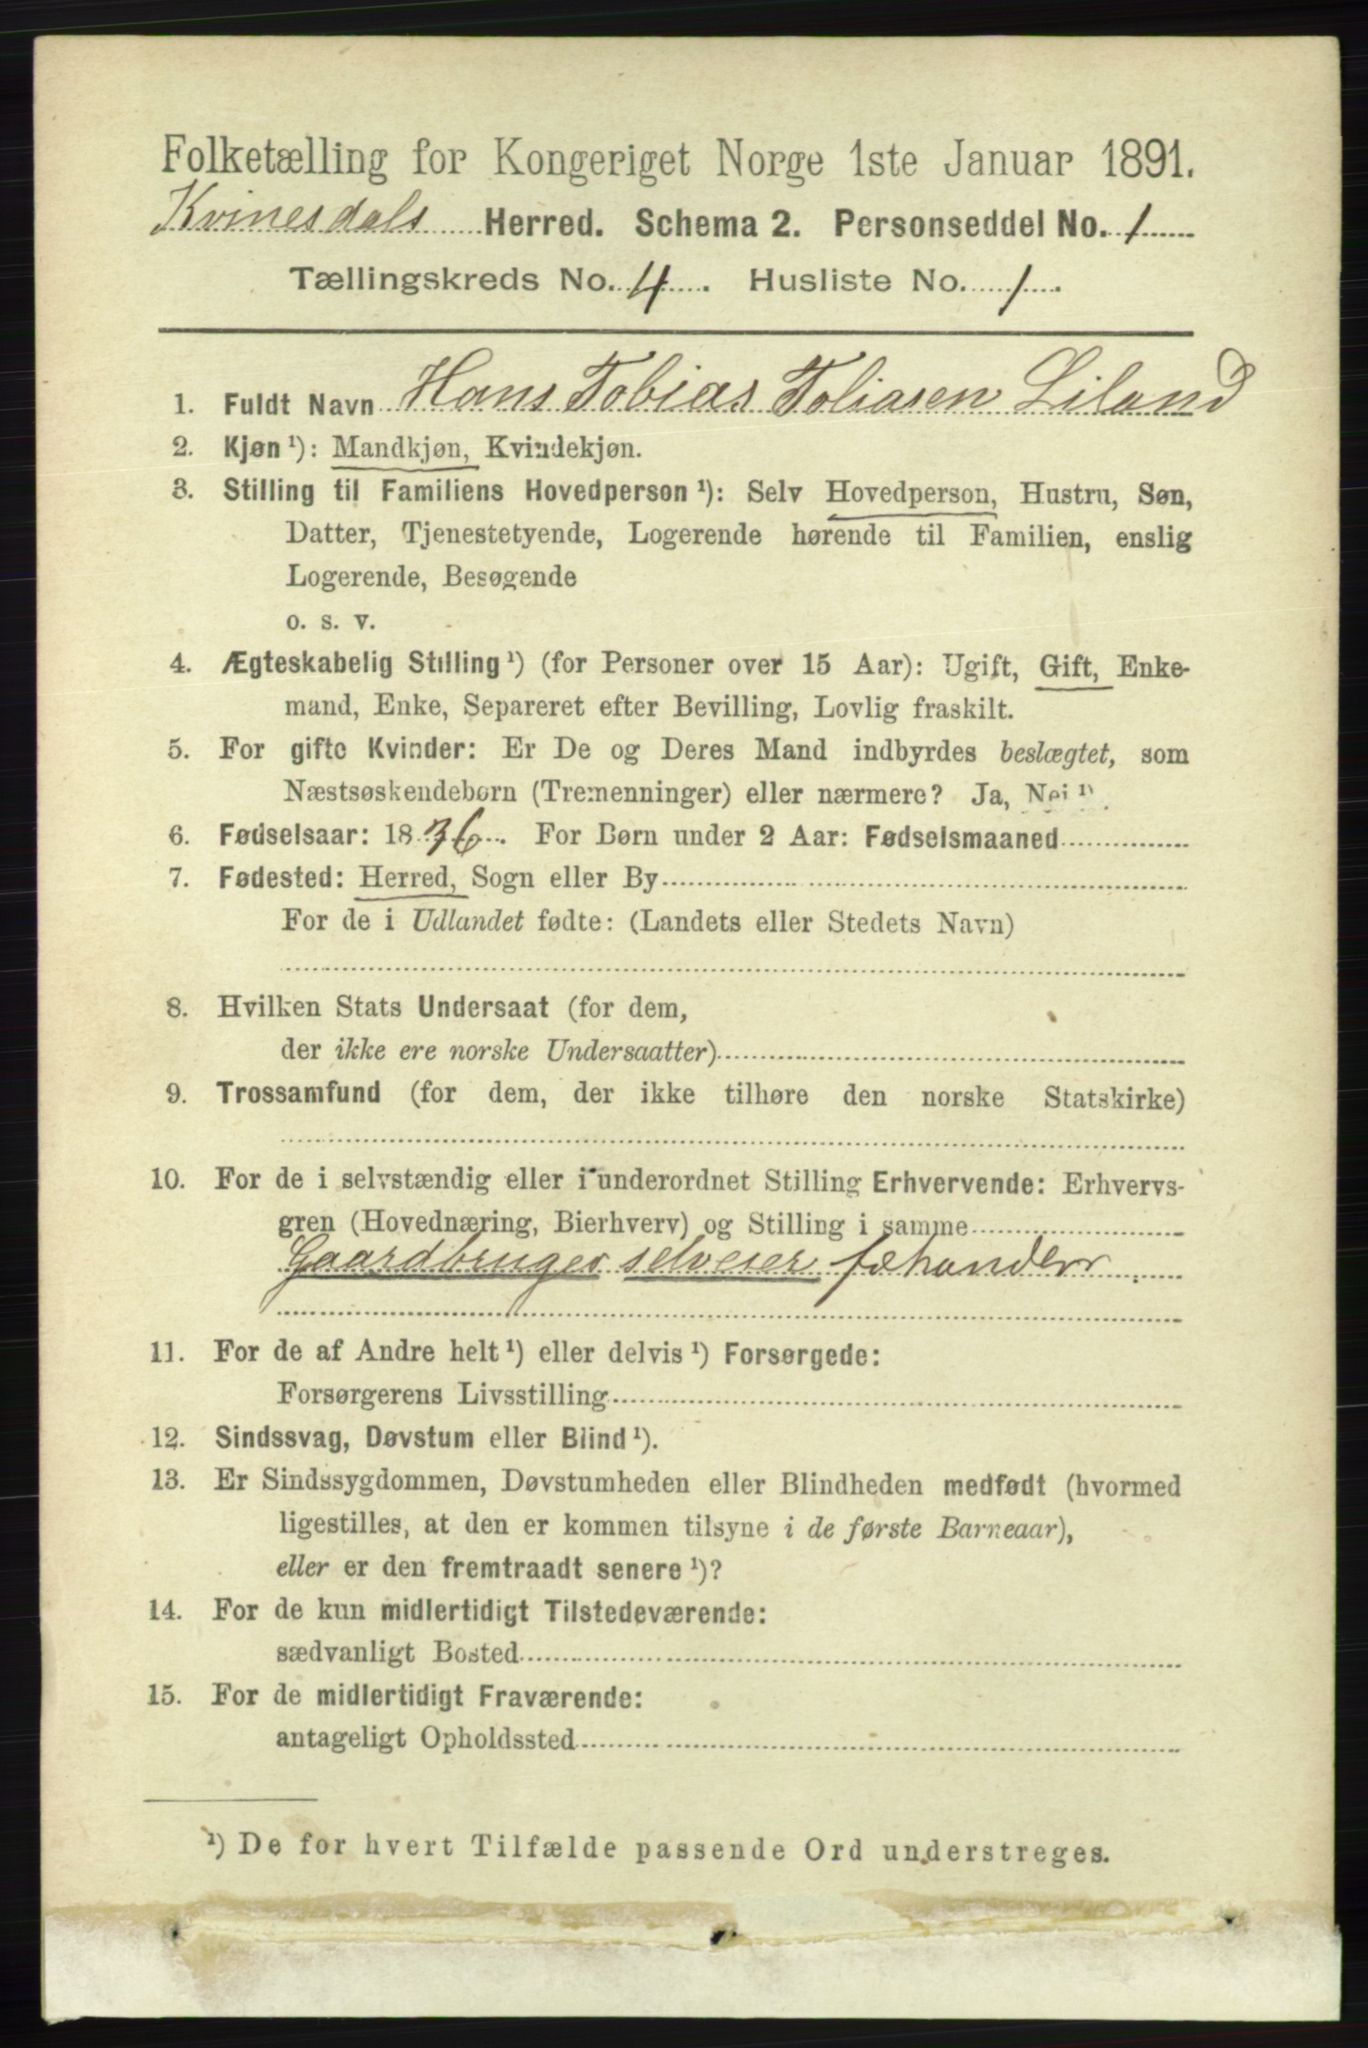 Folketælling for Kongeriget Norge 1ste Januar 1891.
Kvinesdals Herred. Schema 2. Personseddel No. 1
Tællingskreds No. 4. Husliste No. 1.
1. Fuldt Navn Hans Tobias Tobiasen Liland
2. Kjøn¹): Mandkjøn, Kvindekjøn.
3. Stilling til Familiens Hovedperson¹): Selv Hovedperson, Hustru, Søn,
Datter, Tjenestetyende, Logerende hørende til Familien, enslig
Logerende, Besøgende
o. s. v.
4. Ægteskabelig Stilling¹) (for Personer over 15 Aar): Ugift, Gift, Enke-
mand, Enke, Separeret efter Bevilling, Lovlig fraskilt.
5. For gifte Kvinder: Er De og Deres Mand indbyrdes beslægtet, som
Næstsøskendebørn (Tremenninger) eller nærmere? Ja, Nei ¹).
6. Fødselsaar: 1836. For Børn under 2 Aar: Fødselsmaaned
7. Fødested: Herred, Sogn eller By
For de i Udlandet fødte: (Landets eller Stedets Navn)
8. Hvilken Stats Undersaat (for dem,
der ikke ere norske Undersaatter)
9. Trossamfund (for dem, der ikke tilhøre den norske Statskirke)
10. For de i selvstændig eller i underordnet Stilling Erhvervende: Erhvervs-
gren (Hovednæring, Bierhverv) og Stilling i samme
Gaardbruger selveier fæhandler
11. For de af Andre helt¹) eller delvis¹) Forsørgede:
Forsørgerens Livsstilling
12. Sindssvag, Døvstum eller Blind¹).
13. Er Sindssygdommen, Døvstumheden eller Blindheden medfødt (hvormed
ligestilles, at den er kommen tilsyne i de første Barneaar),
eller er den fremtraadt senere¹)?
14. For de kun midlertidigt Tilstedeværende:
sædvanligt Bosted
15. For de midlertidigt Fraværende:
antageligt Opholdssted
¹) De for hvert Tilfælde passende Ord understreges.